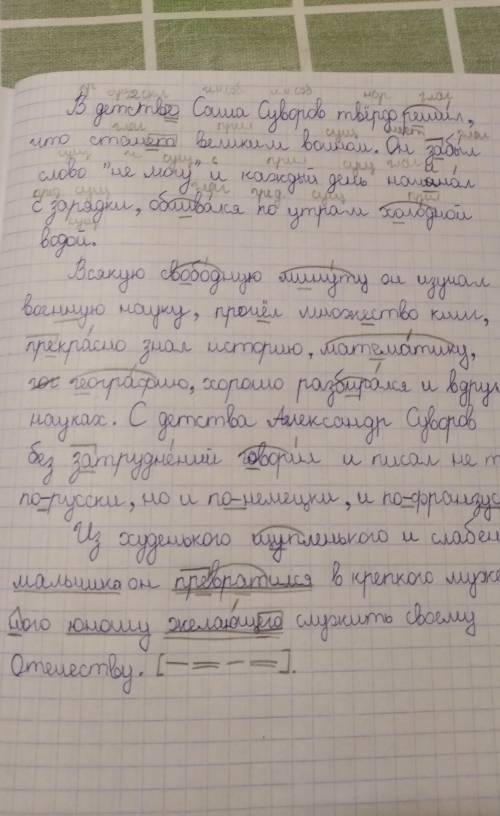 В детстве Саша Суворов твёрдо решил,
что станет великим воином. Он забыл
слово "не могу" и каждый день начинал
с зарядки, обливался по утрам холодной
водой.
Всякую свободную минуту он изучал
военную науку, прочёл множество книг,
прекрасно знал историю, математику,
географию, хорошо разбирался и в друг
науках. С детства Александр Суворов
без затруднений говорил и писал не т
по-русски, но и по-немецки, и по-французс
Из худенького щупленького и слабен
мальчика он превратился в крепкого муже
ого юношу желающего служить своему
Отечеству. [— = — =].